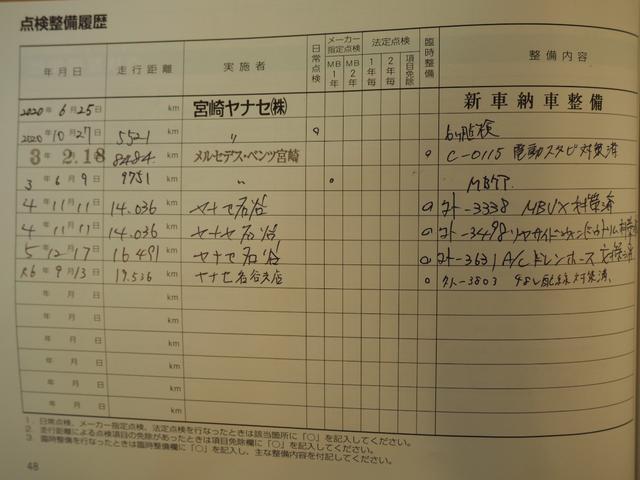 点検整備履歴
年月日 走行距離 実施者 日常点検 メーカー指定点検 MB1年 MB2年 法定点検 1年毎 2年毎 項目免除 臨時整備 整備内容
2020年6月25日 km 宮崎ヤナセ(株) 新車納車整備
2020年10月27日 5521 〃 ○ 6ヶ月点検
3 2.18 8484 メルセデス・ベンツ宮崎 ○ C-0115 電動スタビ対策済
3年6月9日 9751 〃 ○
4年11月11日 14.036 ヤナセ名谷 ○ -3338 MBUX対策済
4年11月11日 14.036 ヤナセ名谷 ○ -3498
5年12月17日 16491 ヤナセ名谷 ○ -3631 A/Cドレンホース
R6年9月13日 19.536 ヤナセ名谷支店 ○ -3803 48V配線対策済
年 月 日 km
年 月 日 km
年 月 日 km
年 月 日 km
年 月 日 km
1. 日常点検、メーカー指定点検、法定点検を行なったときは該当箇所に「○」を記入してください。
2. 走行距離による点検項目の免除があったときは項目免除欄に「○」を記入してください。
3. 臨時整備を行なったときは臨時整備欄に「○」を記入し、主な整備内容を付記してください。
48